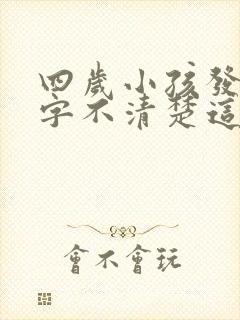 四歲小孩發
字不清楚這
會不會玩